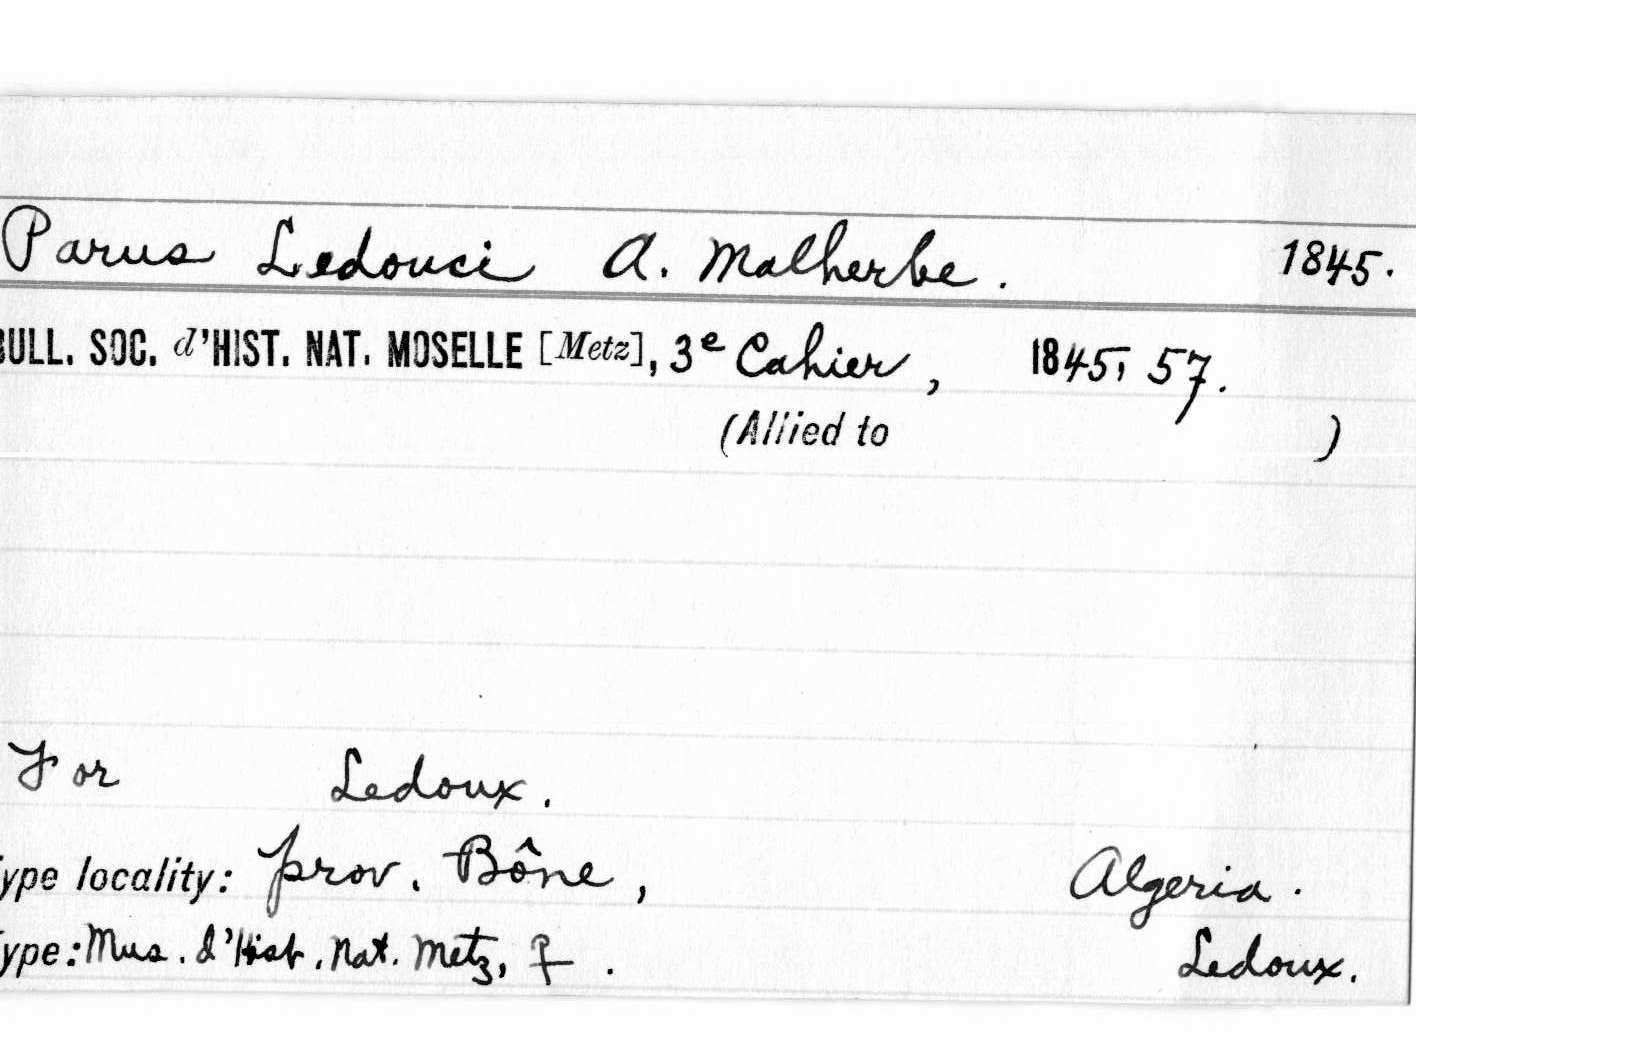 Parus Ledouci A. Malherbe. 1845.
BULL. SOC. d'HIST. NAT. MOSELLE [Metz], 3e Cahier, 1845, 57.
(Allied to )
For Ledoux.
ype locality: prov. Bône, Algeria.
ype: Mus. d'Hist. Nat. Metz, ♀. Ledoux.